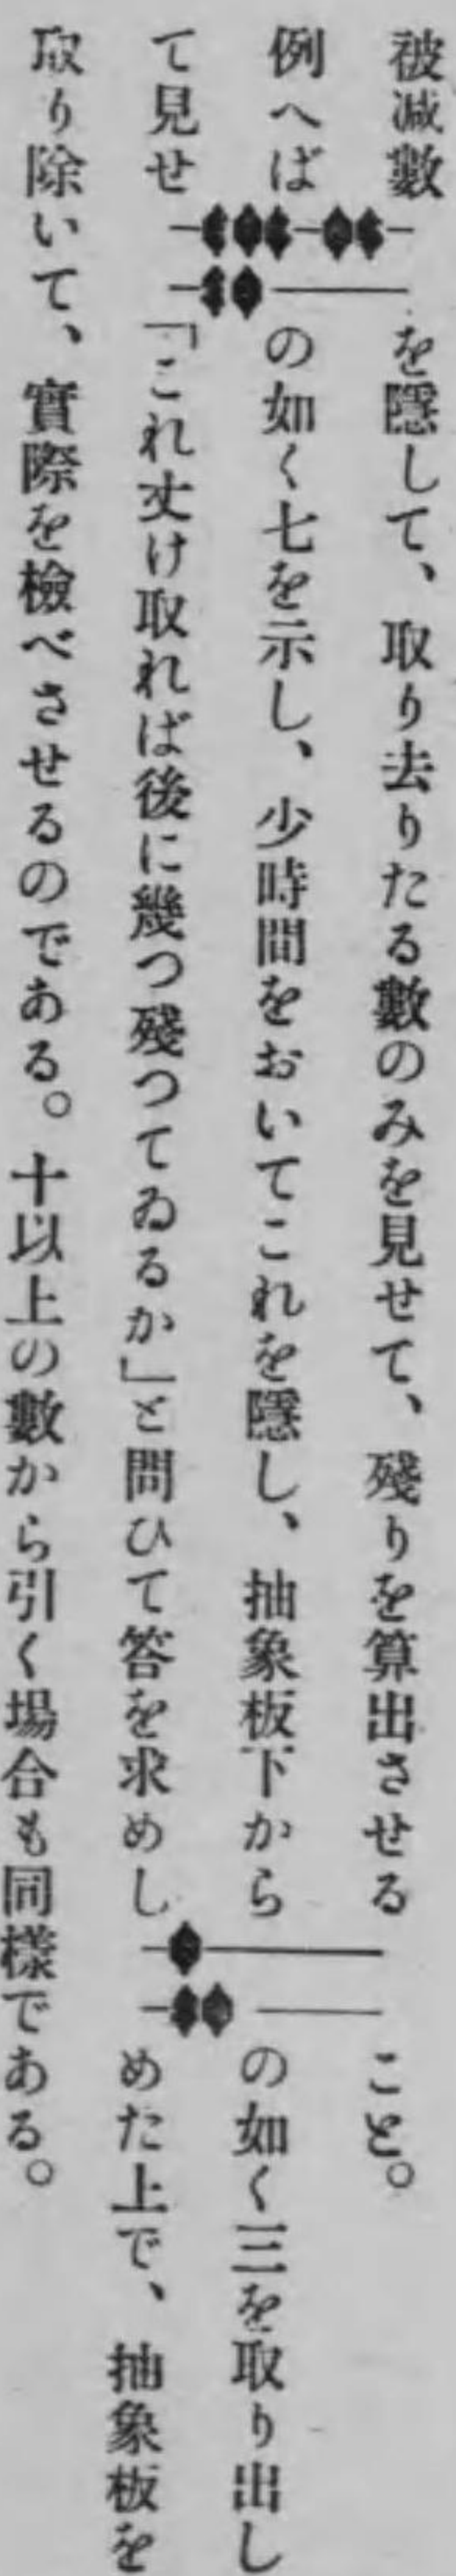 被減數を隱して、取り去りたる數のみを見せて、殘りを算出させること。
例へばの如く七を示し、少時間をおいてこれを隱し、抽象板下からの如く三を取り出し
て見せ「これ丈け取れば後に幾つ殘つてゐるか」と問ひて答を求めしめた上で、抽象板を
取り除いて、實際を檢べさせるのである。十以上の數から引く場合も同樣である。